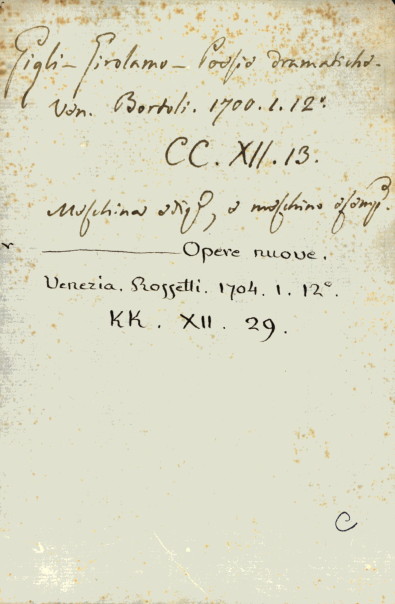 Gigli - Girolamo - Poesie dramatiche.
Ven. Bortoli. 1700. 1. 12°.
CC. XII. 13.
Meschina , e meschino esemp.
Opere nuove.
Venezia. Rossetti. 1704. 1. 12°.
KK. XII. 29.
C